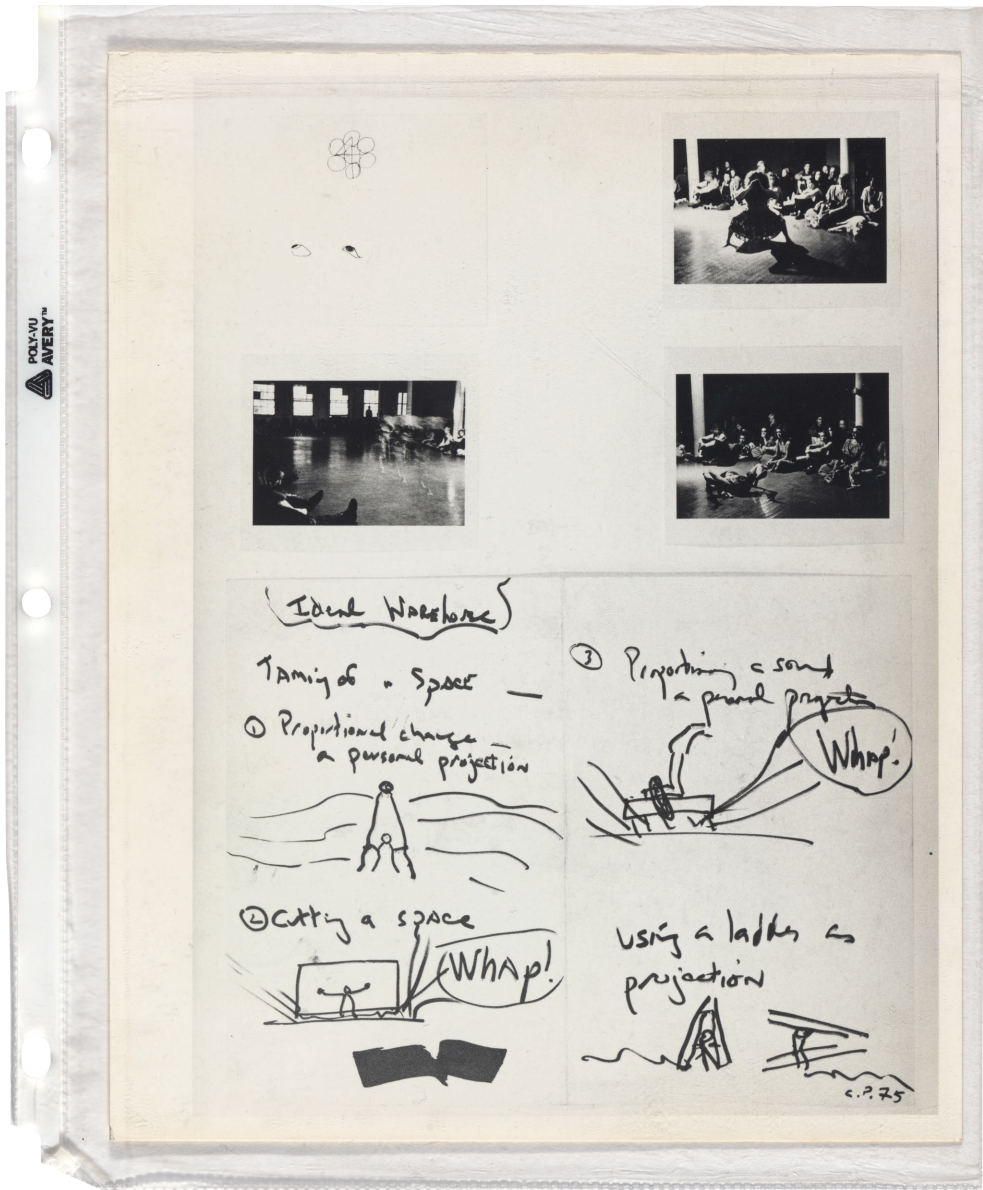 POLY-VU
AVERY™
Ideal Warehouse
Taming of a Space —
① Proportional change —
a personal projection
② Cutting a space
Whap!
③ Proportioning a sound
a personal projection
Whap!
using a ladder as
projection
C.P. 75